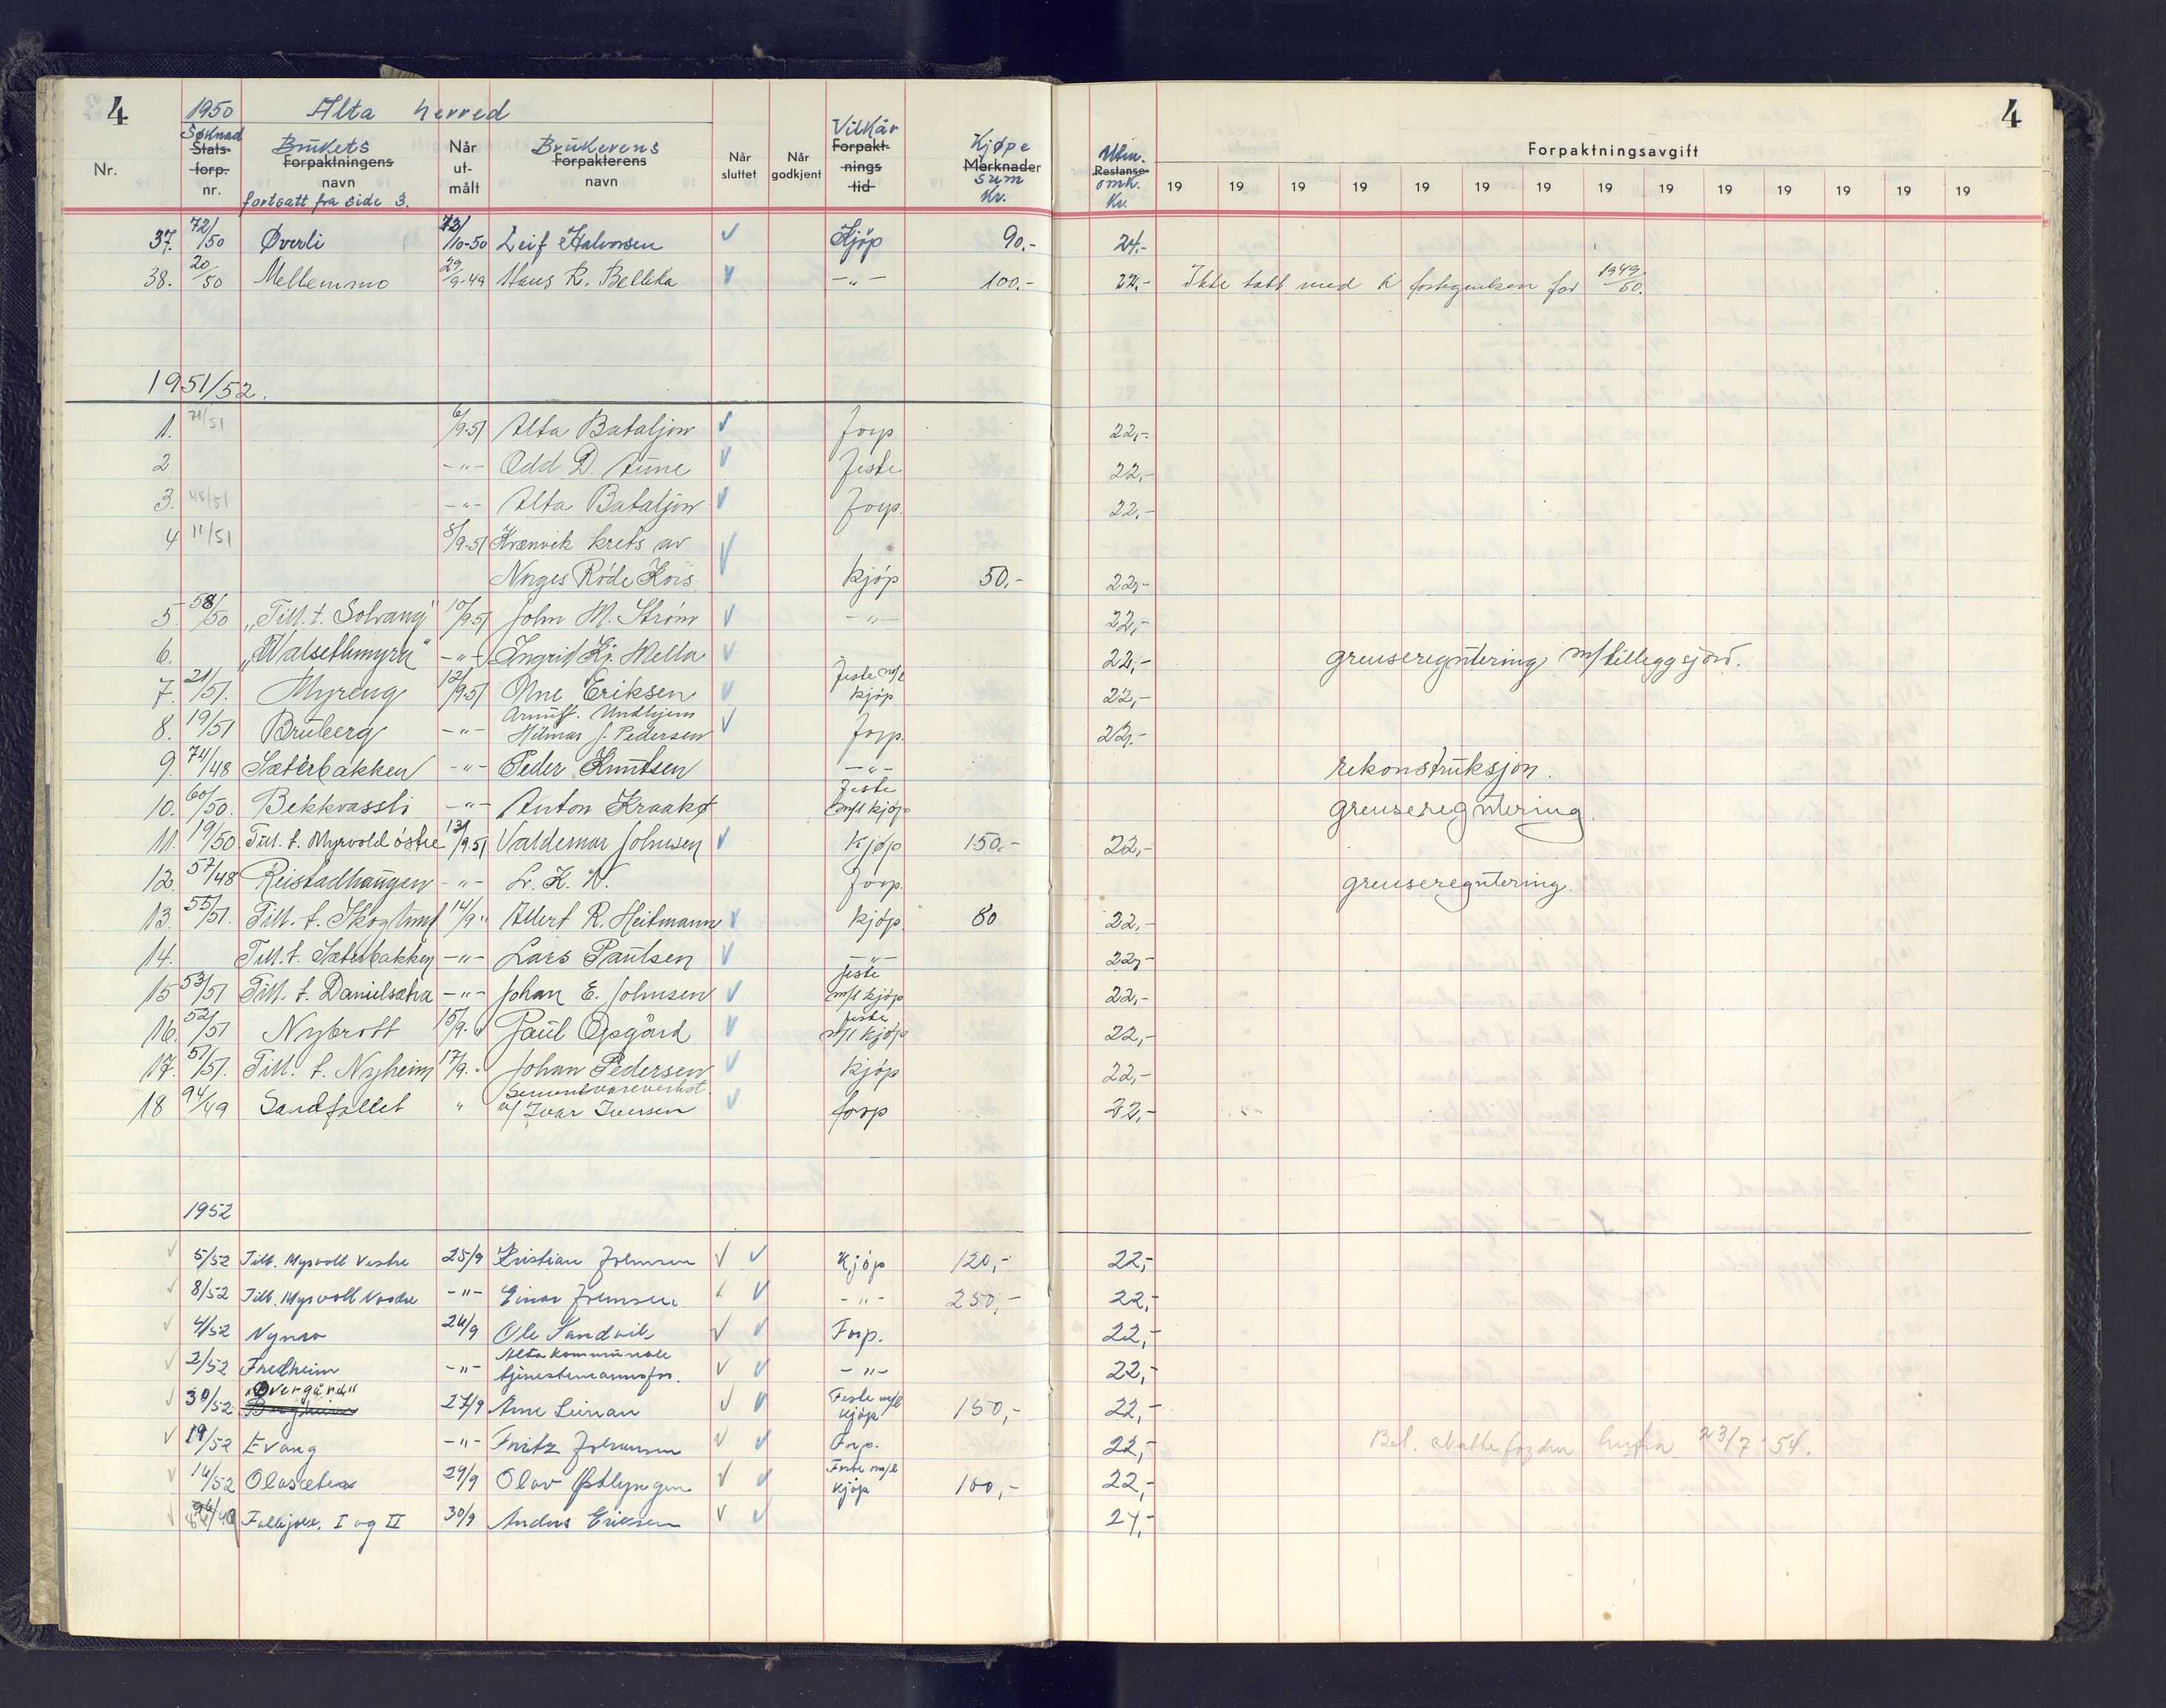 4 1950 Alta herred 4
Nr. Søknad Stats- forp. nr. Brukets Forpaktningens navn Når ut- målt Brukerens Forpakterens navn Når sluttet Når godkjent Vilkår Forpakt- nings tid Kjøpe Merknader sum Kr. Utm. Restanse omk. Kr. Forpaktningsavgift
fortsatt fra side 3. 19 19 19 19 19 19 19 19 19 19 19 19 19 19
37. 72/50 Øverli 13/10-50 Leif Halvorsen Kjøp 90.- 24.-
38. 20/50 Mellemmo 29/9-49 Hans R. Bellika -"- 100.- 22.- Ikke tatt med i for 1949/50.
1951/52.
1. 71/51 6/9-51 Alta Bataljon Forp. 22,-
2. -"- Odd D. Aune Feste 22,-
3. 48/51 -"- Alta Bataljon Forp. 22,-
4 11/51 8/9-51 Kvænvik krets av
Norges Røde Kors kjøp 50.- 22,-
5. 58/50 „Till. t. Solvang" 10/9-51 John M. Strøm -"- 22,-
6. „Walsethmyra" -"- Ingrid Kj. Mella 22,- grenseregulering m/tilleggsjord.
7. 21/51. Myreng 12/9-51 Arne Eriksen Feste m/t kjøp 22,-
8. 19/51 Bruberg -"- Arnulf. Undhjem Hilmar J. Pedersen Forp. 22,-
9. 74/48 Sæterbakken -"- Peder Knutsen -"- rekonstruksjon.
10. 60/50. Bekkvassli -"- Anton Kraakø Feste m/t kjøp grenseregulering.
11. 19/50 Till. t. Myrvold østre 13/9.51 Valdemar Johnsen kjøp 150.- 22,-
12. 57/48 Reistadhaugen -"- L. K. N. Forp. grenseregulering.
13. 55/51. Till. t. Skoglund 14/9 " Albert R. Heitmann kjøp 80 22,-
14. Till. t. Sæterbakken -"- Lars Paulsen -"- 22,-
15 53/51 Till. t. Danielsætra -"- Johan E. Johnsen feste m/t kjøp 22,-
16. 52/51 Nybrott 15/9. " Paul Opgård feste m/t kjøp 22,-
17. 51/51. Till. t. Nyheim 17/9. " Johan Pedersen kjøp 22,-
18 94/49 Sandfallet " Sementvareverkst. v/ Ivar Iversen forp 22,-
1952
5/52 Till. Myrvoll Vestre 25/9 Kristian Johnsen Kjøp 120,- 22,-
8/52 Till. Myrvoll Nordre -"- Einar Johnsen -"- 250,- 22,-
4/52 Nymo 26/9 Ole Sandvik Forp. 22,-
2/52 Fredheim -"- Alta kommunale tjenestemannsfor. -"- 22,-
30/52 „Øvergård" Bergheim 27/9 Arne Leinan Feste m/t kjøp 150,- 22,-
19/52 Evang -"- Fritz Johansen Forp. 22,- Bet. 23/7 - 54.
14/52 Olasætra 29/9 Olav Østlyngen Feste m/t kjøp 100,- 22,-
I og II 30/9 Anders Eriksen 24,-